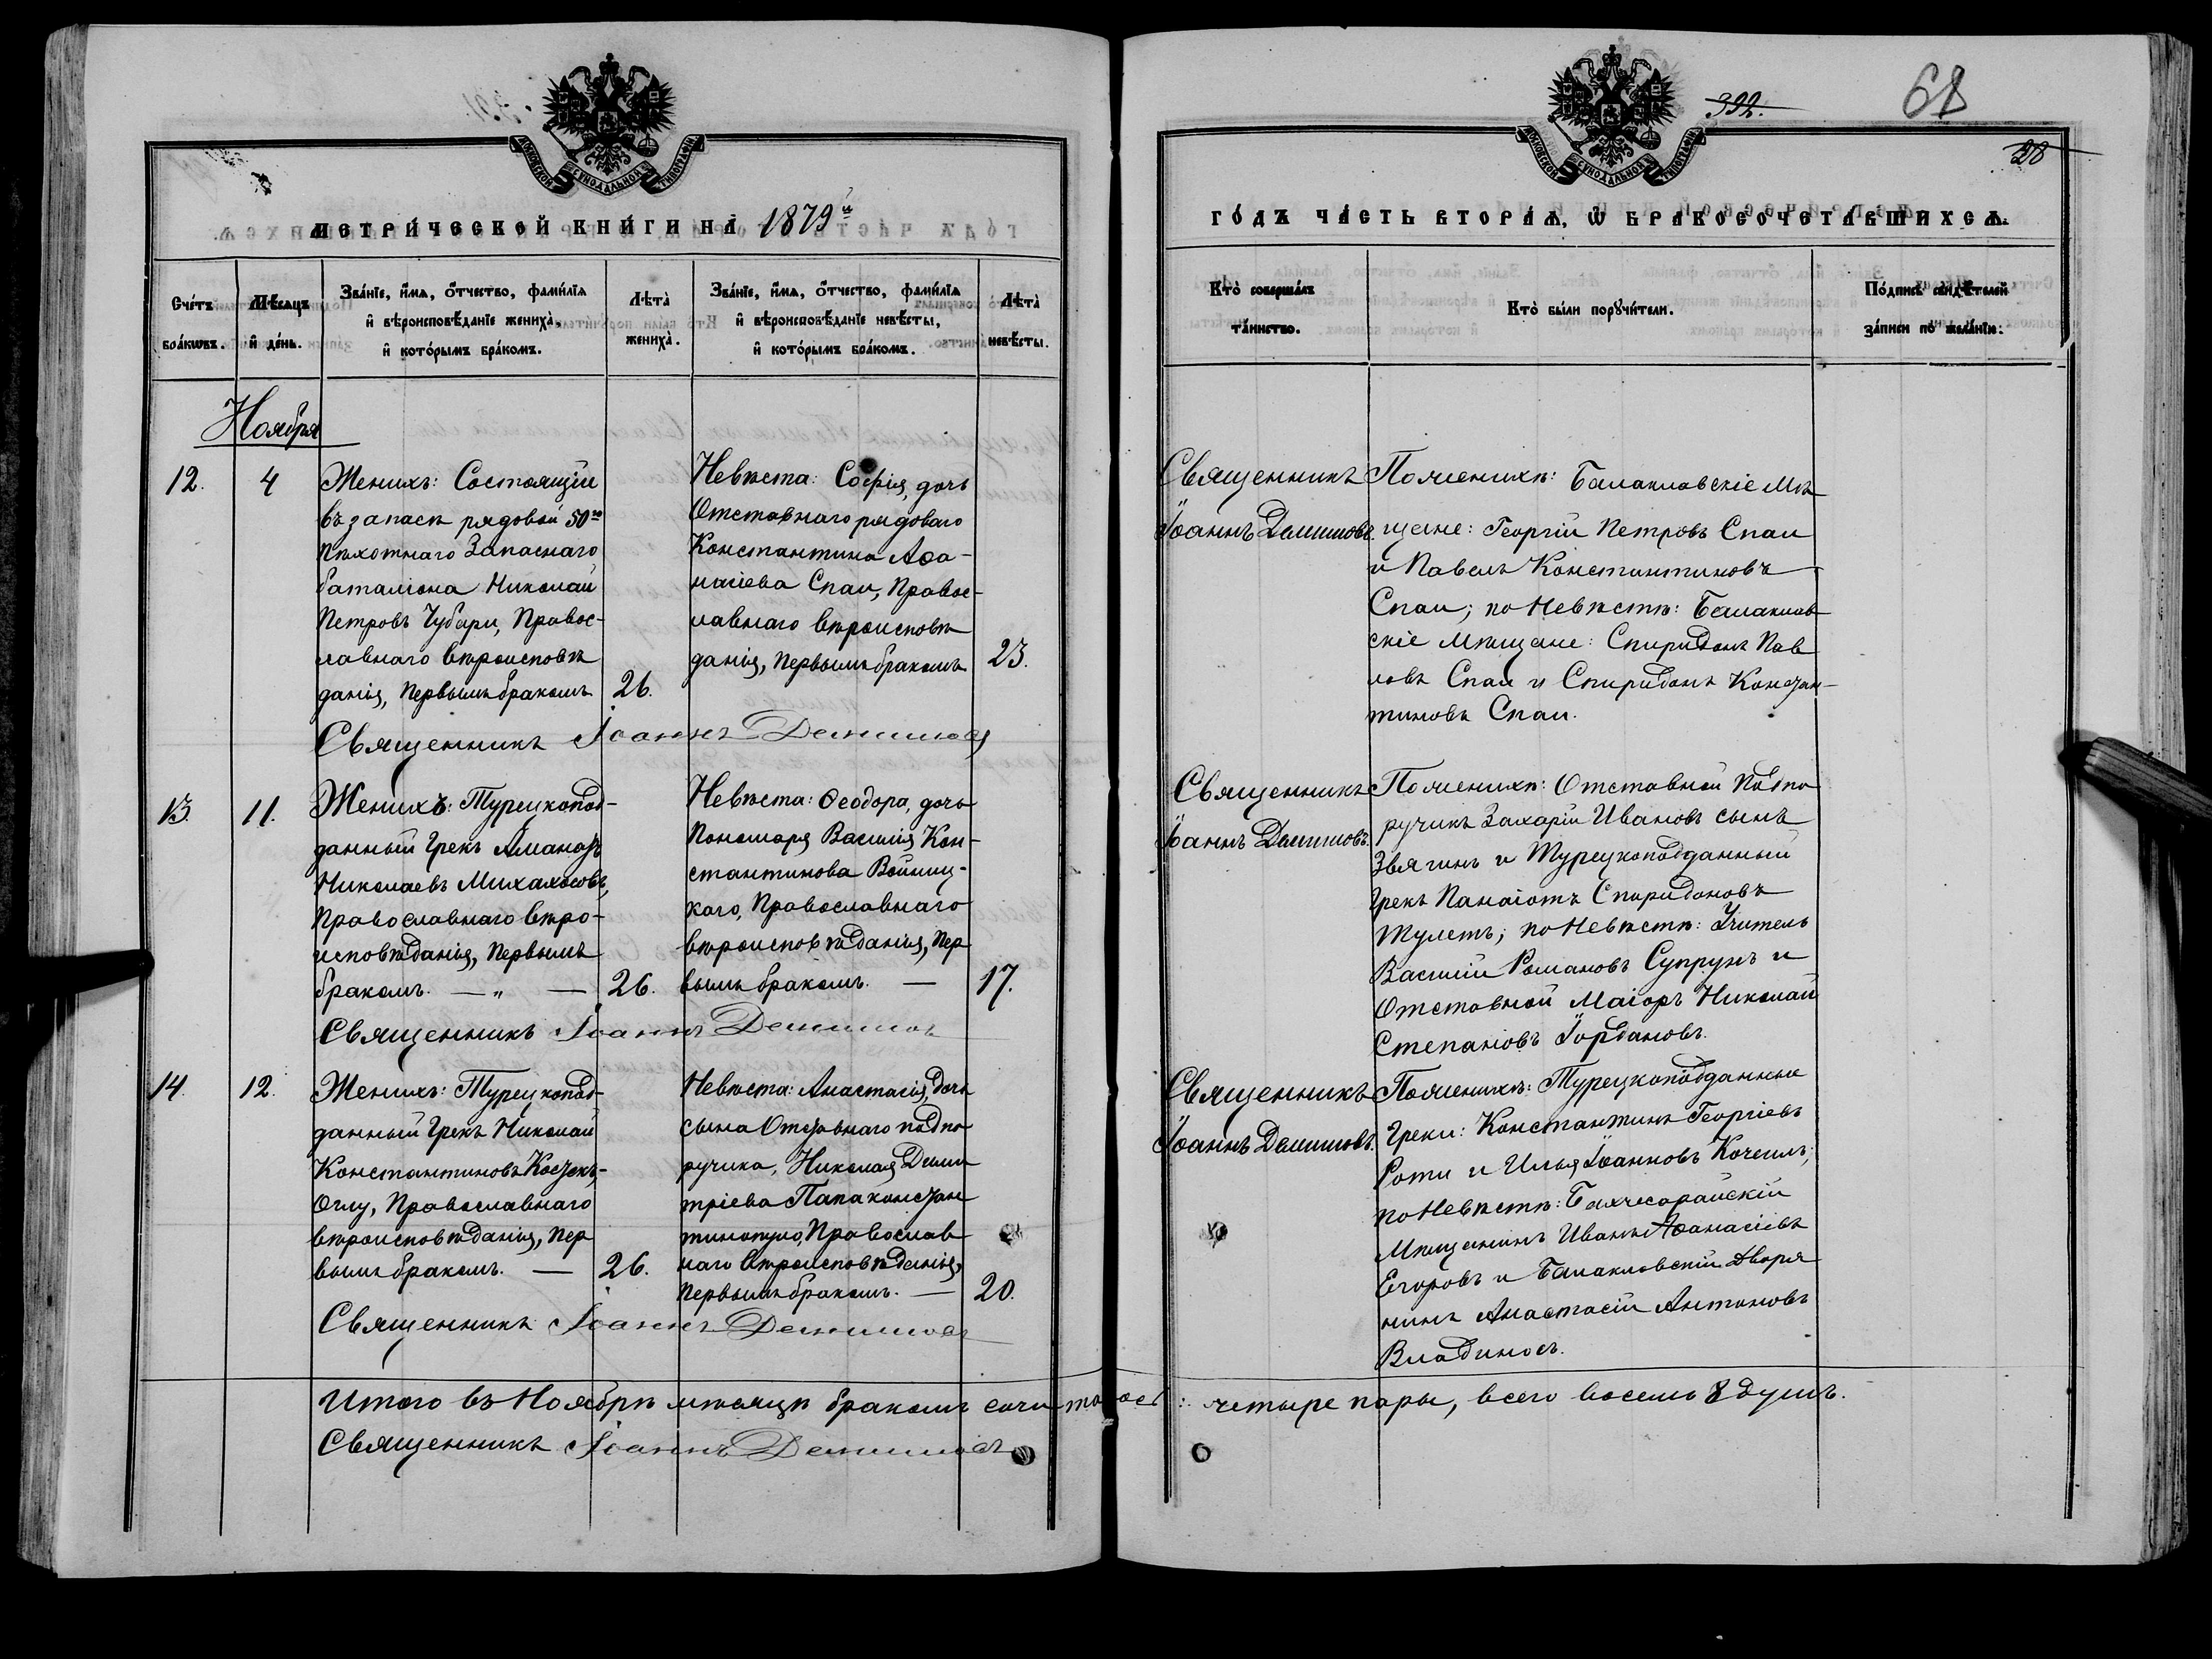 МОСКОВСКОЙ СѴНОДАЛЬНОЙ ТИПОГРАФІИ
МЕТРИ́ЧЕСКОЙ КНИ́ГИ НА̀ 1879й
Сче́тъ бра́кωвъ.
Мѣ́сяцъ и҆ де́нь.
Зва́нїе, и҆́мѧ, ѻ҆́тчество, фами́лїѧ
и҆ вѣроисповѣ́данїе жениха̀,
и҆ кото́рымъ бра́комъ.
Лѣта̀
жениха̀.
Зва́нїе, и҆́мѧ, ѻ҆́тчество, фами́лїѧ
и҆ вѣроисповѣ́данїе невѣ́сты,
и҆ кото́рымъ бра́комъ.
Лѣта̀
невѣ́сты.
Ноября
12.
4
Женихъ: Состоящій
въ запасѣ рядовой 50го
пѣхотнаго Запаснаго
баталіона Николай
Петровъ Чубари, Правос-
лавнаго вѣроисповѣ
данія, первымъ бракомъ
26.
Невѣста: Софія, дочь
Отставнаго рядоваго
Константина Аѳа-
насіева Спаи, Правос-
лавнаго вѣроисповѣ
данія, первымъ бракомъ
23.
Священникъ Іоаннъ
13.
11.
Женихъ: Турецкопод-
данный Грекъ
Николаевъ
Православнаго вѣро-
исповѣданія, первымъ
бракомъ. — „ —
26.
Невѣста: Ѳеодора, дочь
Пономаря Василія Кон-
стантинова Войниц-
каго, Православнаго
вѣроисповѣданія, пер
вымъ бракомъ. —
17.
Священникъ Іоаннъ
14.
12.
Женихъ: Турецкопод-
данный Грекъ Николай
Константиновъ
Оглу, Православнаго
вѣроисповѣданія, пер
вымъ бракомъ. —
26.
Невѣста: Анастасія, дочь
сына Отставнаго подпо
ручика, Николая Дими
тріева Папаконстан
Православ
наго вѣроисповѣданія,
первымъ бракомъ. —
20.
Священникъ Іоаннъ
Итого въ Ноябрѣ мѣсяцѣ бракомъ сочеталось: четыре пары, всего восемь 8 душъ.
Священникъ Іоаннъ
392.
68
28
МОСКОВСКОЙ СѴНОДАЛЬНОЙ ТИПОГРАФІИ
ГО́ДЪ ЧА́СТЬ ВТОРА́Ѧ, Ѡ҆ БРАКОСОЧЕТА́ВШИХСѦ.
Кто̀ соверша́лъ
та́инство.
Кто̀ бы́ли порꙋчи́тели.
По́дпись свидѣ́телей
за́писи по жела́нїю:
Священникъ
Іоаннъ
По женихѣ: Балаклавскіе Мѣ
щане: Георгій Петровъ Спаи
и Павелъ Константиновъ
Спаи; по Невѣстѣ: Балаклав
скіе Мѣщане: Спиридонъ Пав
ловъ Спаи и Спиридонъ Констан-
тиновъ Спаи.
Священникъ
Іоаннъ
По женихѣ: Отставной Подпо
ручикъ Захарій Ивановъ сынъ
Звягинъ и Турецкоподданный
Грекъ Панаіотъ Спиридоновъ
по Невѣстѣ: Учитель
Василій Романовъ Супрунъ и
Отставной Маіоръ Николай
Степановъ Іордановъ.
Священникъ
Іоаннъ
По женихѣ: Турецкоподданные
Греки: Константинъ Георгіевъ
Роти и Илья Іоанновъ
по Невѣстѣ: Бахчисарайскій
Мѣщанинъ Иванъ Аѳанасіевъ
Егоровъ и Балаклавскій Дворя
нинъ Анастасій Антоновъ
Владиносъ.